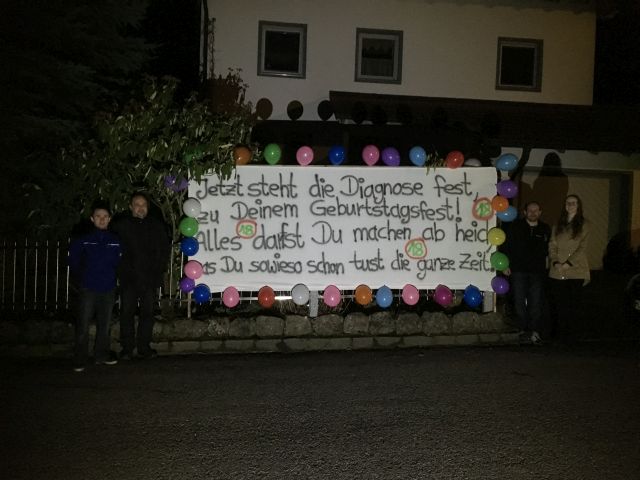 Jetzt steht die Diagnose fest,
zu Deinem Geburtstagsfest! 18
Alles 18 darfst Du machen ab heid,
as Du sowieso schon 18 tust die ganze Zeit.